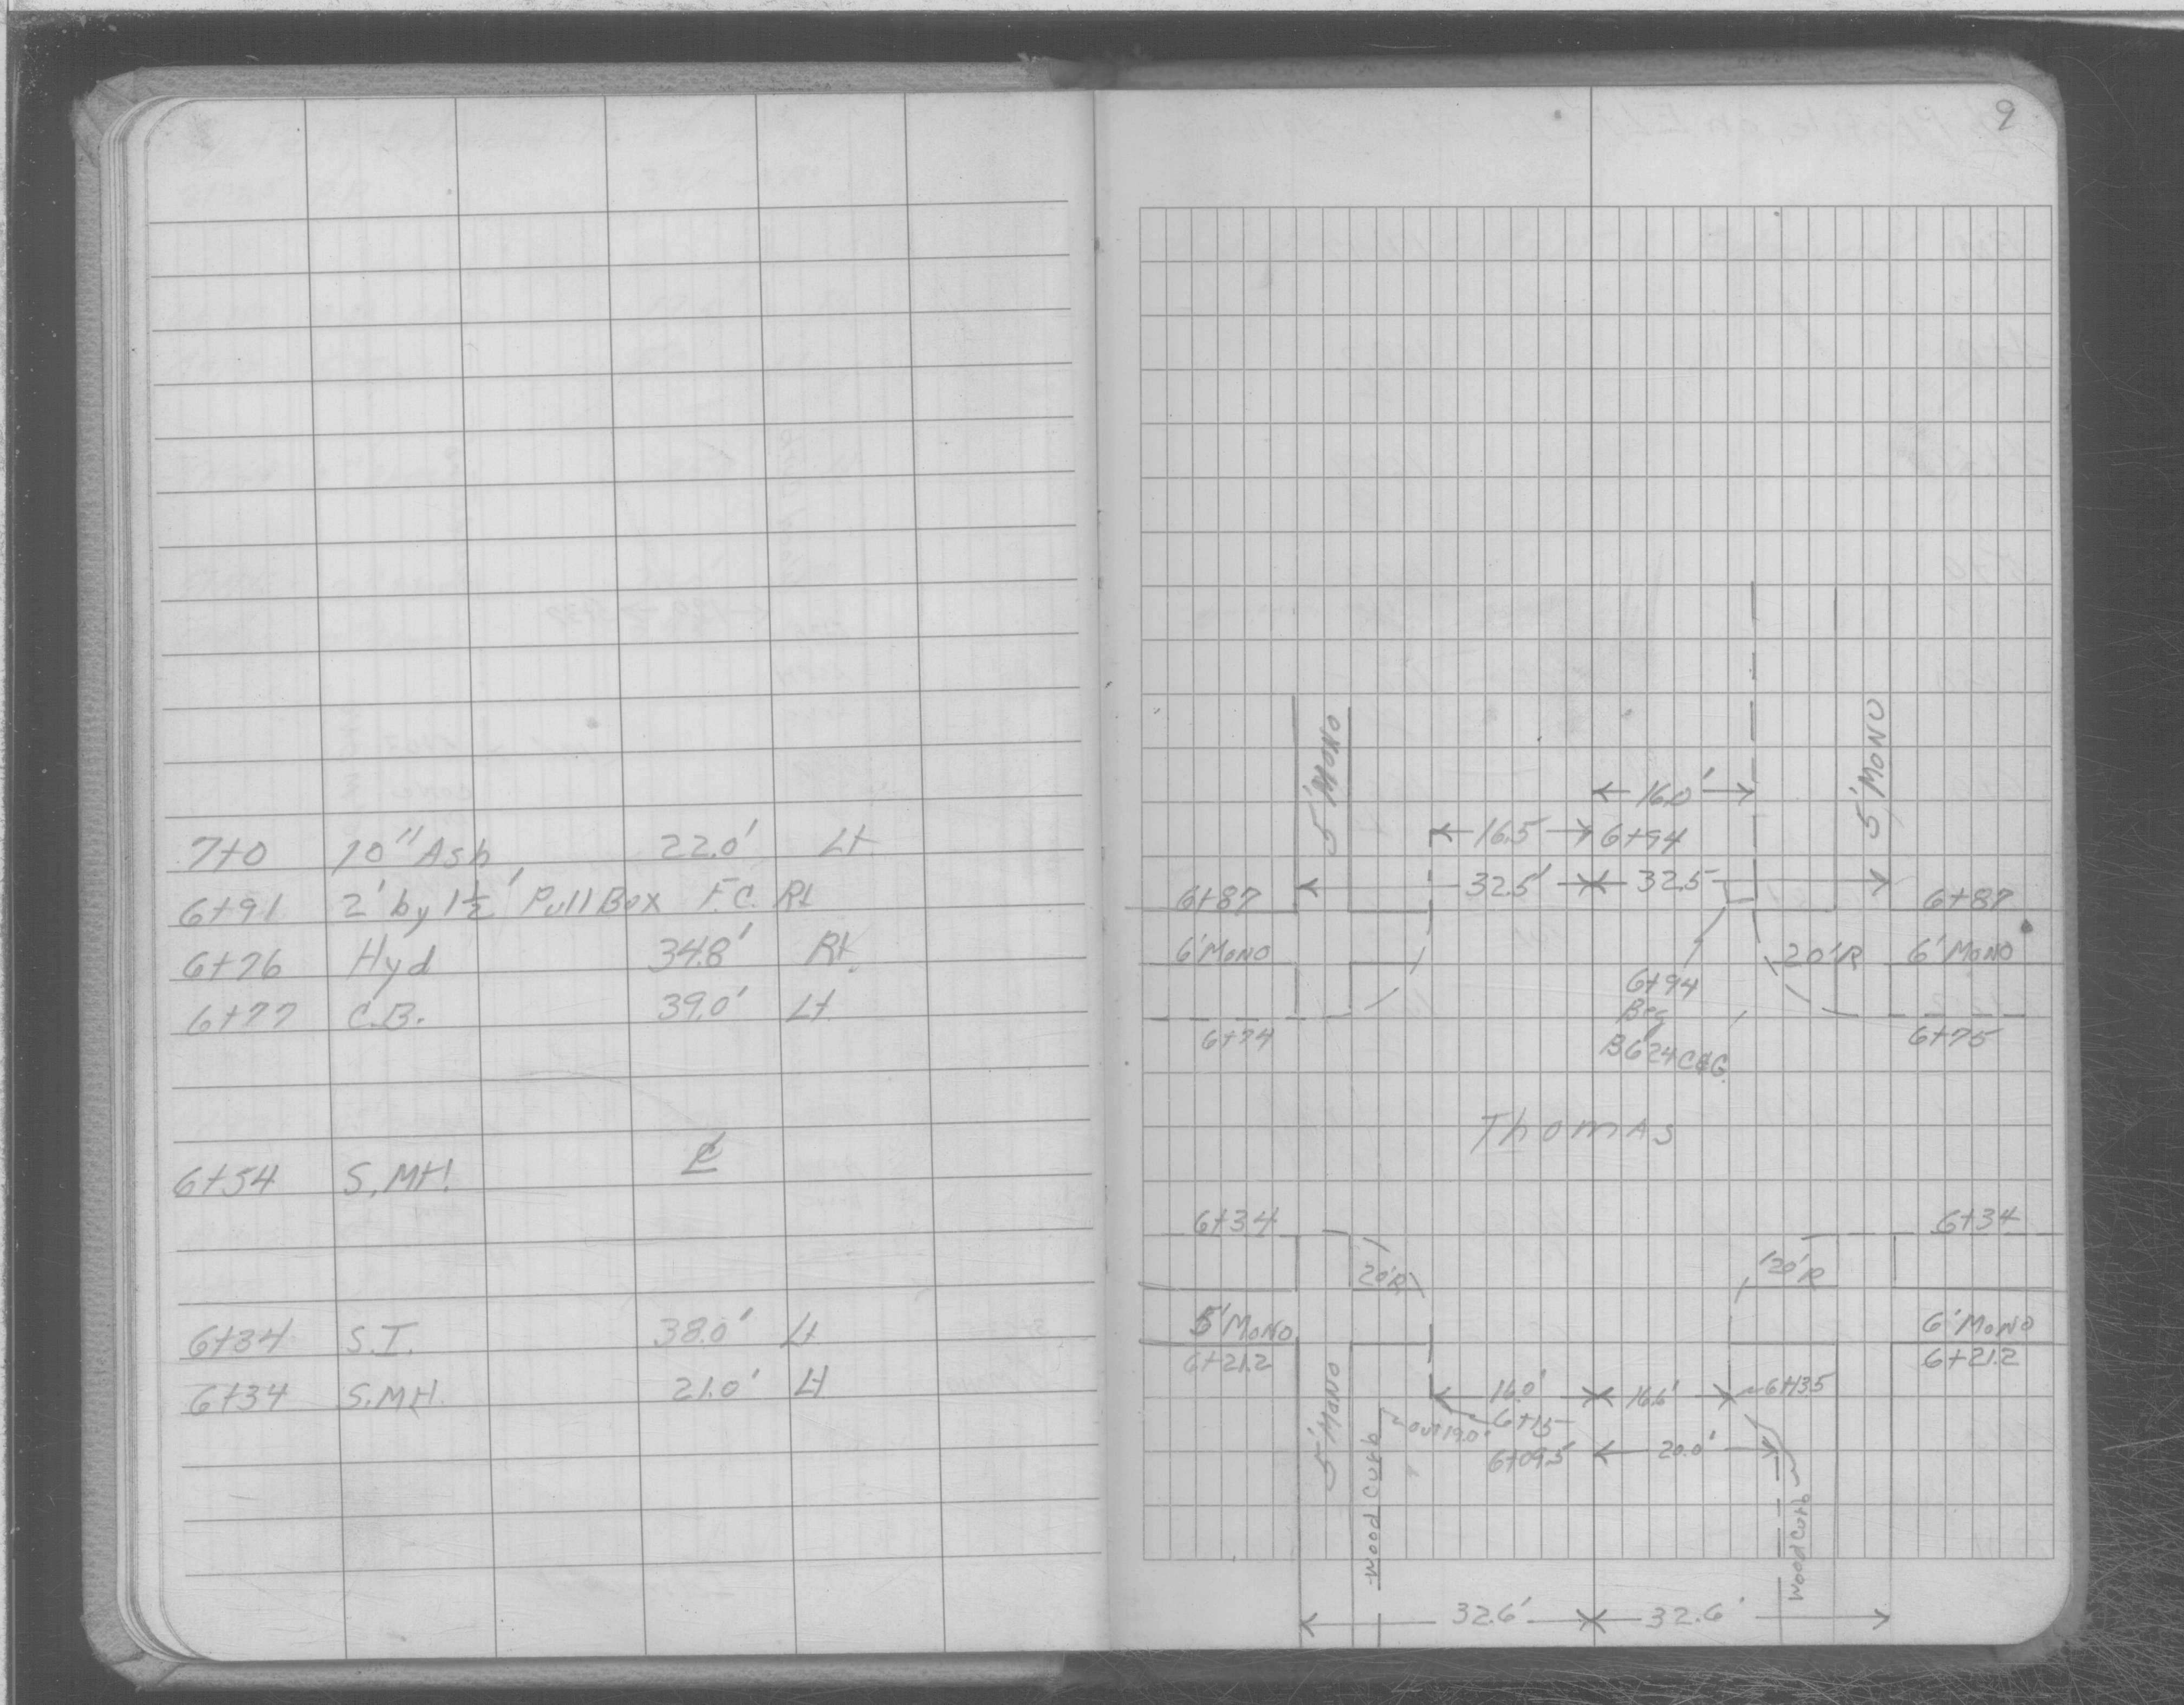 7+0 10" Ash 22.0' Lt
6+91 2' by 1½' Pull Box F.C. Rt
6+76 Hyd 34.8' Rt.
6+77 C.B. 39.0' Lt
6+54 S.MH. ℄
6+34 S.I. 38.0' Lt
6+34 S.MH. 21.0' Lt
9
5' MONO
5' MONO
16.0'
16.5 6+94
32.5' 32.5
6+87 6+87
6' MONO 20'R 6' MONO
6+94
Beg
B624 C&G.
6+74 6+75
Thomas
6+34 6+34
20'R 20'R
5' MONO 6' MONO
6+21.2 6+21.2
16.0' 16.6' 6+13.5
out 19.0' 6+15
6+09.5 20.0'
5' MONO
Wood Curb
Wood Curb
32.6' 32.6'